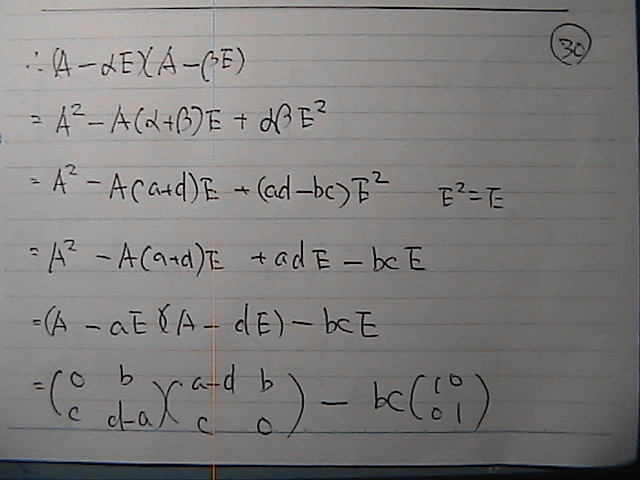 30
∴ (A - αE)(A - βE)
= A² - A(α+β)E + αβE²
= A² - A(a+d)E + (ad-bc)E² E²=E
= A² - A(a+d)E + adE - bcE
= (A - aE)(A - dE) - bcE
= (0 b c d-a)(a-d b c 0) - bc(1 0 0 1)